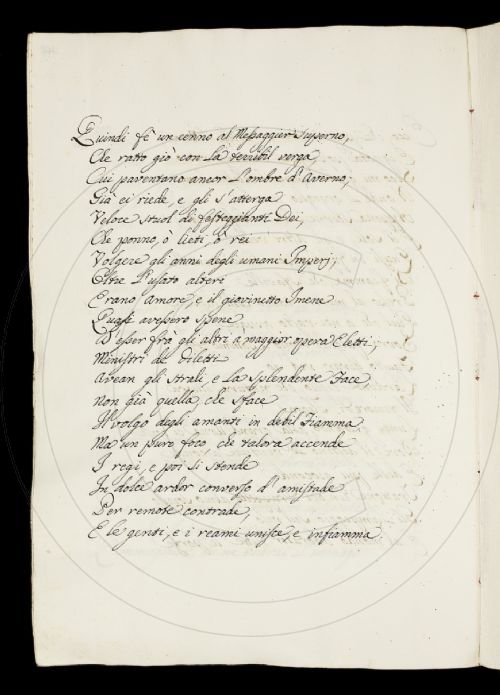 Quindi fè un cenno al Messaggier superno,
Che ratto giò con la terribil verga
Cui paventano ancor l'ombre d'Averno;
Già ei riede, e gli s'atterga
Veloce stuol di festeggianti Dei,
Che ponno, ò lieti, ò rei
Volgere gli anni degli umani Imperj;
Oltre l'usato alteri
Erano Amore, e il giovinetto Imene
Quasi avessero spene
D'esser frà gli altri a maggior opera Eletti;
Ministri de' diletti
Avean gli strali, e la splendente Face,
Non già quella, che sface
Il volgo degli amanti in debil Fiamma
Ma un puro foco, che talora accende
I regi, e poi si stende
In dolce ardor converso d'amistade
Per remote contrade,
E le genti, e i reami unisce, e infiamma.